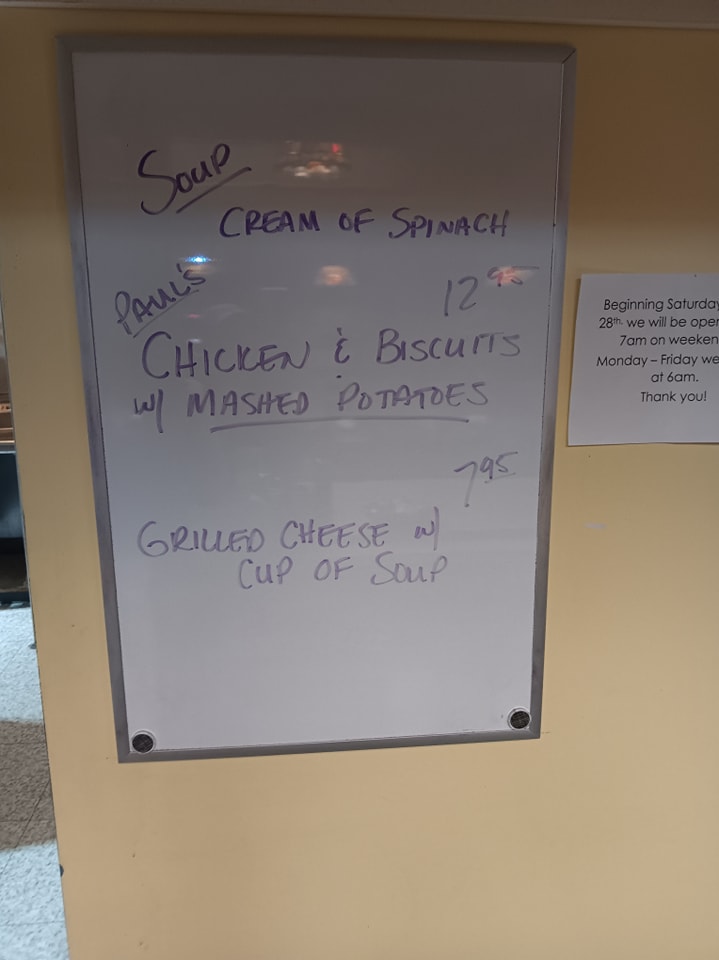 Soup
CREAM OF SPINACH
PAUL'S
12 95
CHICKEN & BISCUITS
W/ MASHED POTATOES
7 95
GRILLED CHEESE W/
CUP OF SOUP
Beginning Saturday
28th, we will be open
7am on weeken
Monday – Friday we
at 6am.
Thank you!